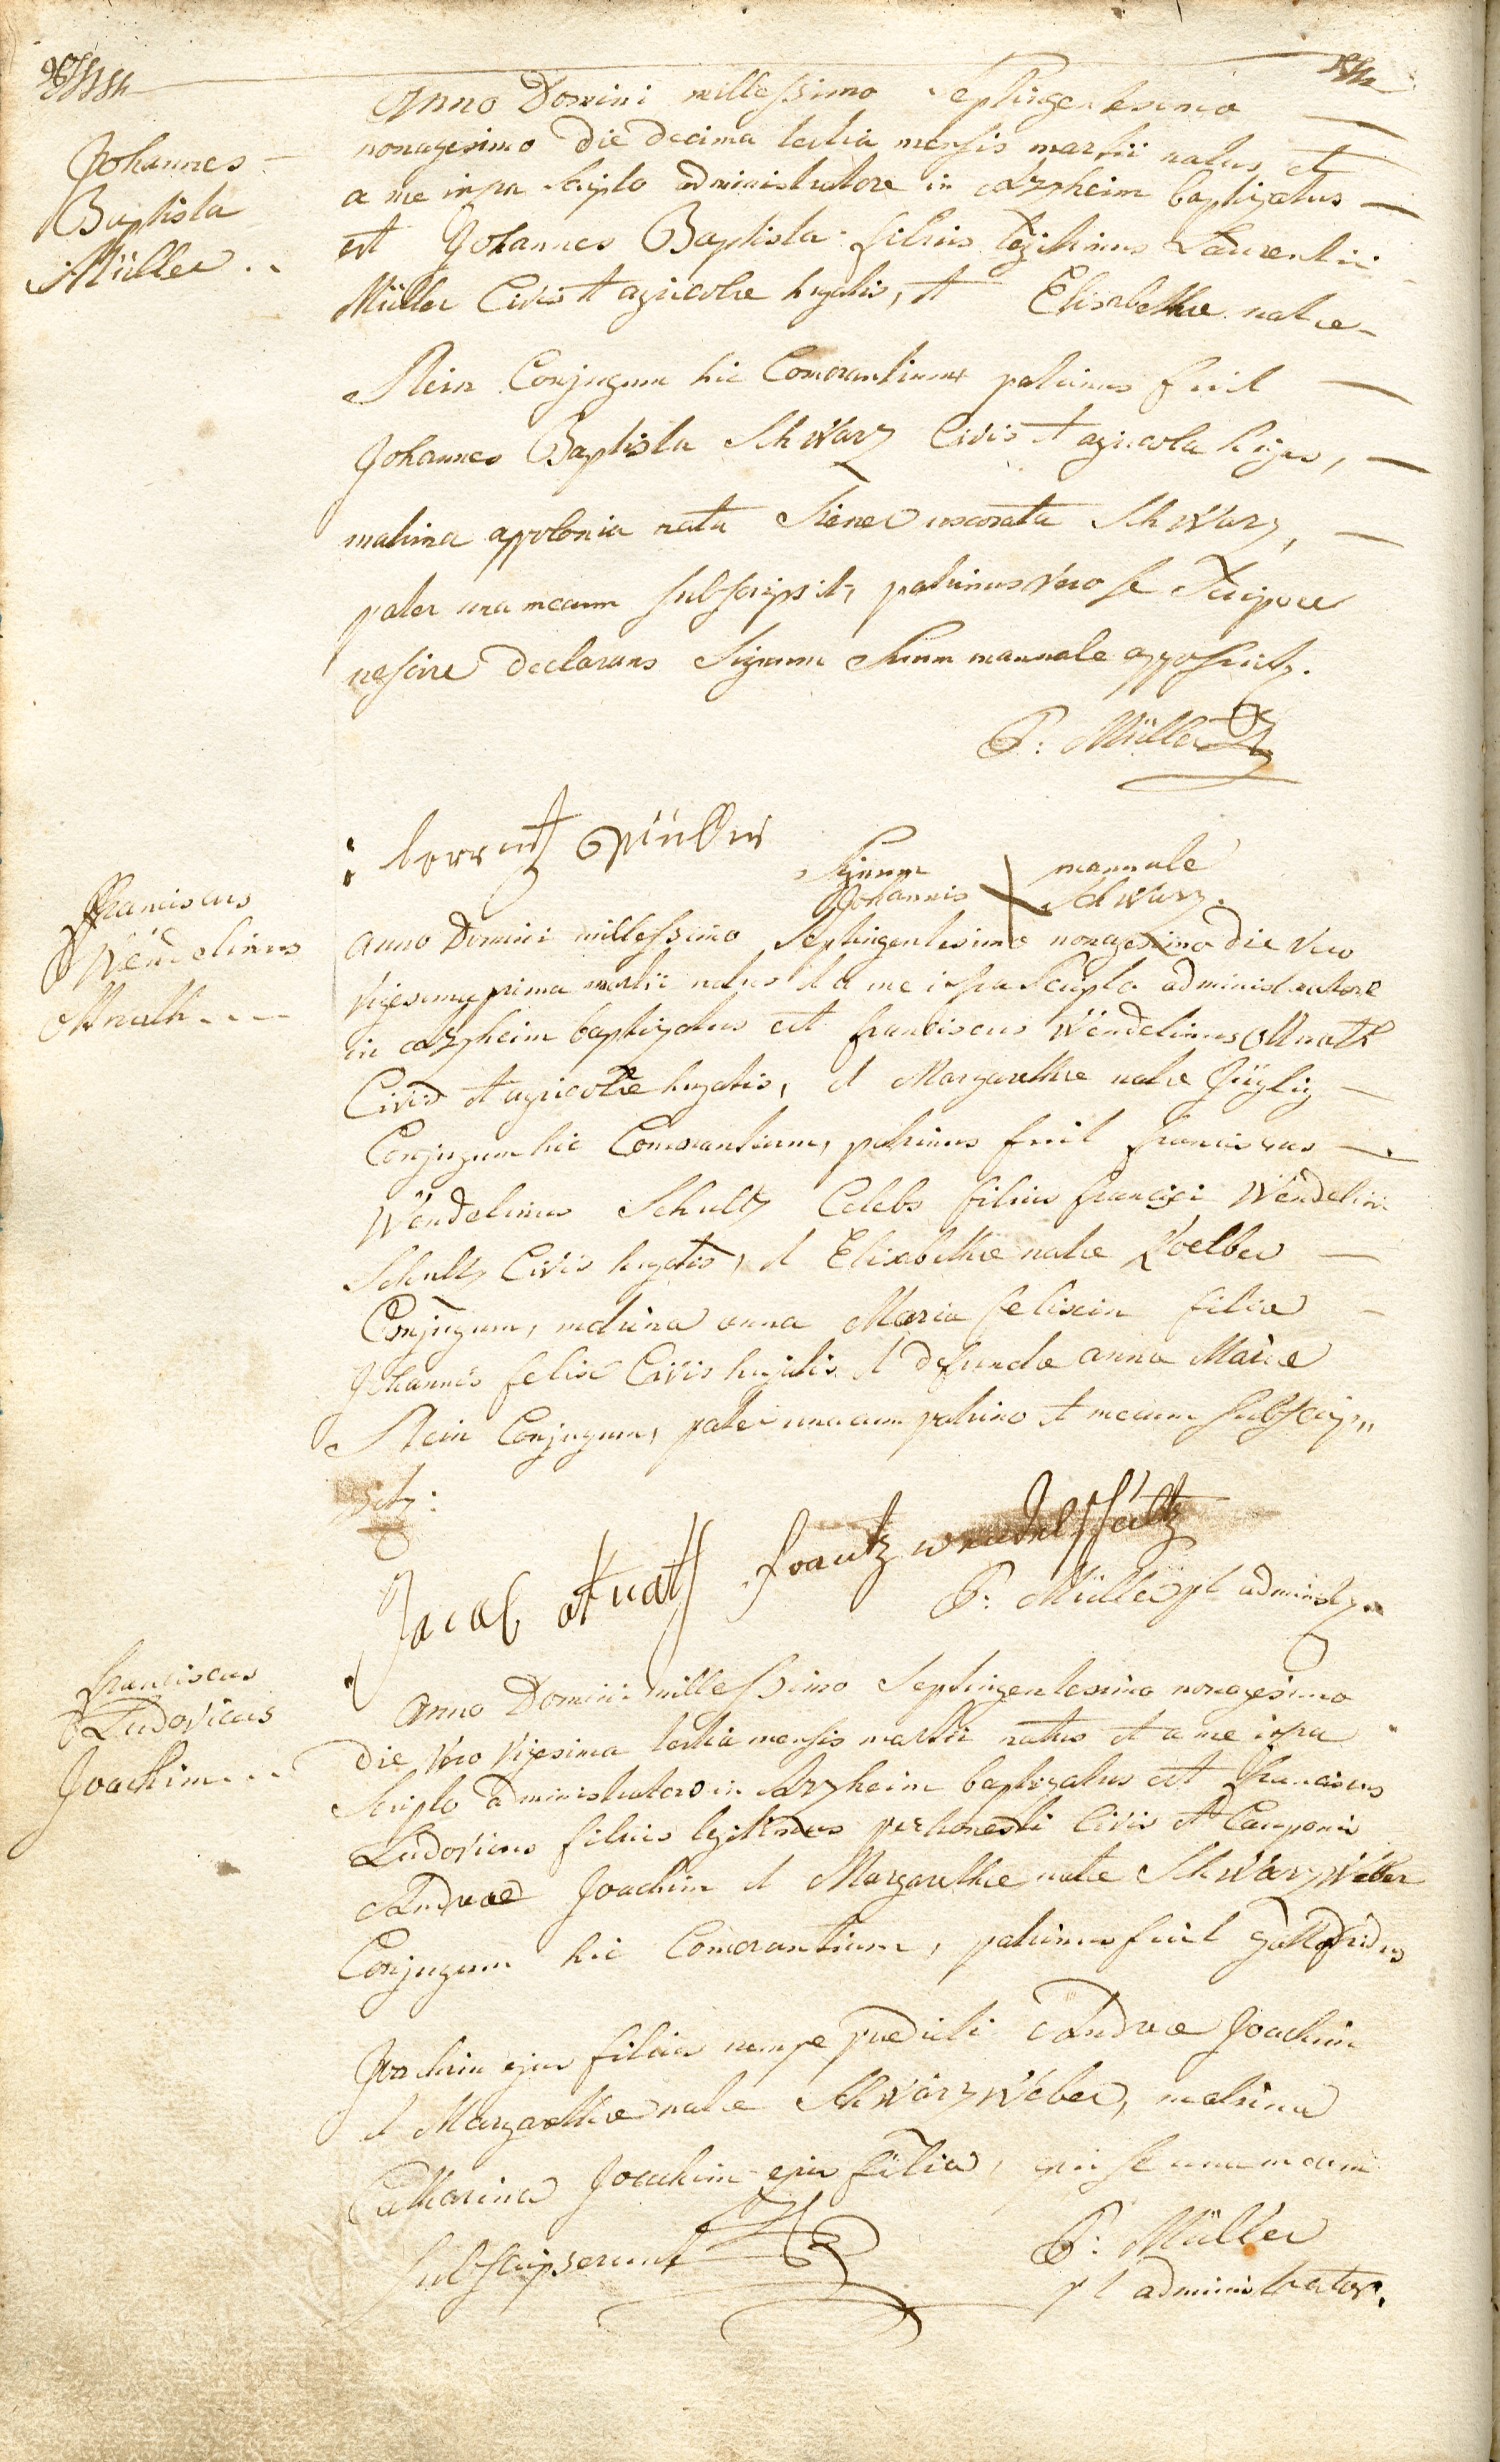 Johannes
Baptista
Müller
Anno Domini millessimo Septingentesimo
nonagesimo die decima tertia mensis martii natus et
a me infra Scripto administratore in Arzheim baptizatus
est Johannes Baptista filius legitimus Laurentii
Müller Civis et agricolæ hujatis, et Elisabethæ natæ
Stein Conjugum hic Comorantium patrinus fuit
Johannes Baptista Schwarz Civis et agricola hujas,
matrina appolonia nata uxorata Schwarz,
pater una mecum subscripsit, patrinus vero se Scripere
nescire declarans Signum Suum manuale apposuit.
P. Müller
lorentz Müller
Signum manuale
Johannis Schwarz.
Franciscus
Wendelinus
anno Domini millessimo Septingentesimo nonagesimo die vero
vigesima prima martii natus et a me infra Scripto administratore
in Arzheim baptizatus est franciscus Wendelinus
Civis et agricolæ hujatis, et Margarethæ natæ
Conjugum hic Comorantium, patrinus fuit franciscus
Wendelinus Schultz Celebs filius francisci Wendelini
Schultz Civis hujatis, et Elisabethæ natæ
Conjugum, matrina anna Maria felixin filia
Johannis felix Civis hujatis et defunctæ anna Mariæ
Stein Conjugum, pater una cum patrino et mecum subscrip„
sit:
Jacob frantz wendel
P: Müller pt administ
franciscus
Ludovicus
Joachim
Anno Domini millessimo Septingentesimo nonagesimo
die vero vigesima tertia mensis martii natus et a me infra
Scripto administratore in Arzheim baptizatus est Franciscus
Ludovicus filius legitimus perhonesti Civis et Cauponis
Andreæ Joachim et Margarethæ natæ Schwarzweber
Conjugum hic Comorantium, patrinus fuit
Joachim ejus filius nempe prædicti Andreæ Joachim
et Margarethæ natæ Schwarzweber, matrina
Catharina Joachim ejus filia, qui se una mecum
subscripserunt
P: Müller
pt administrator.